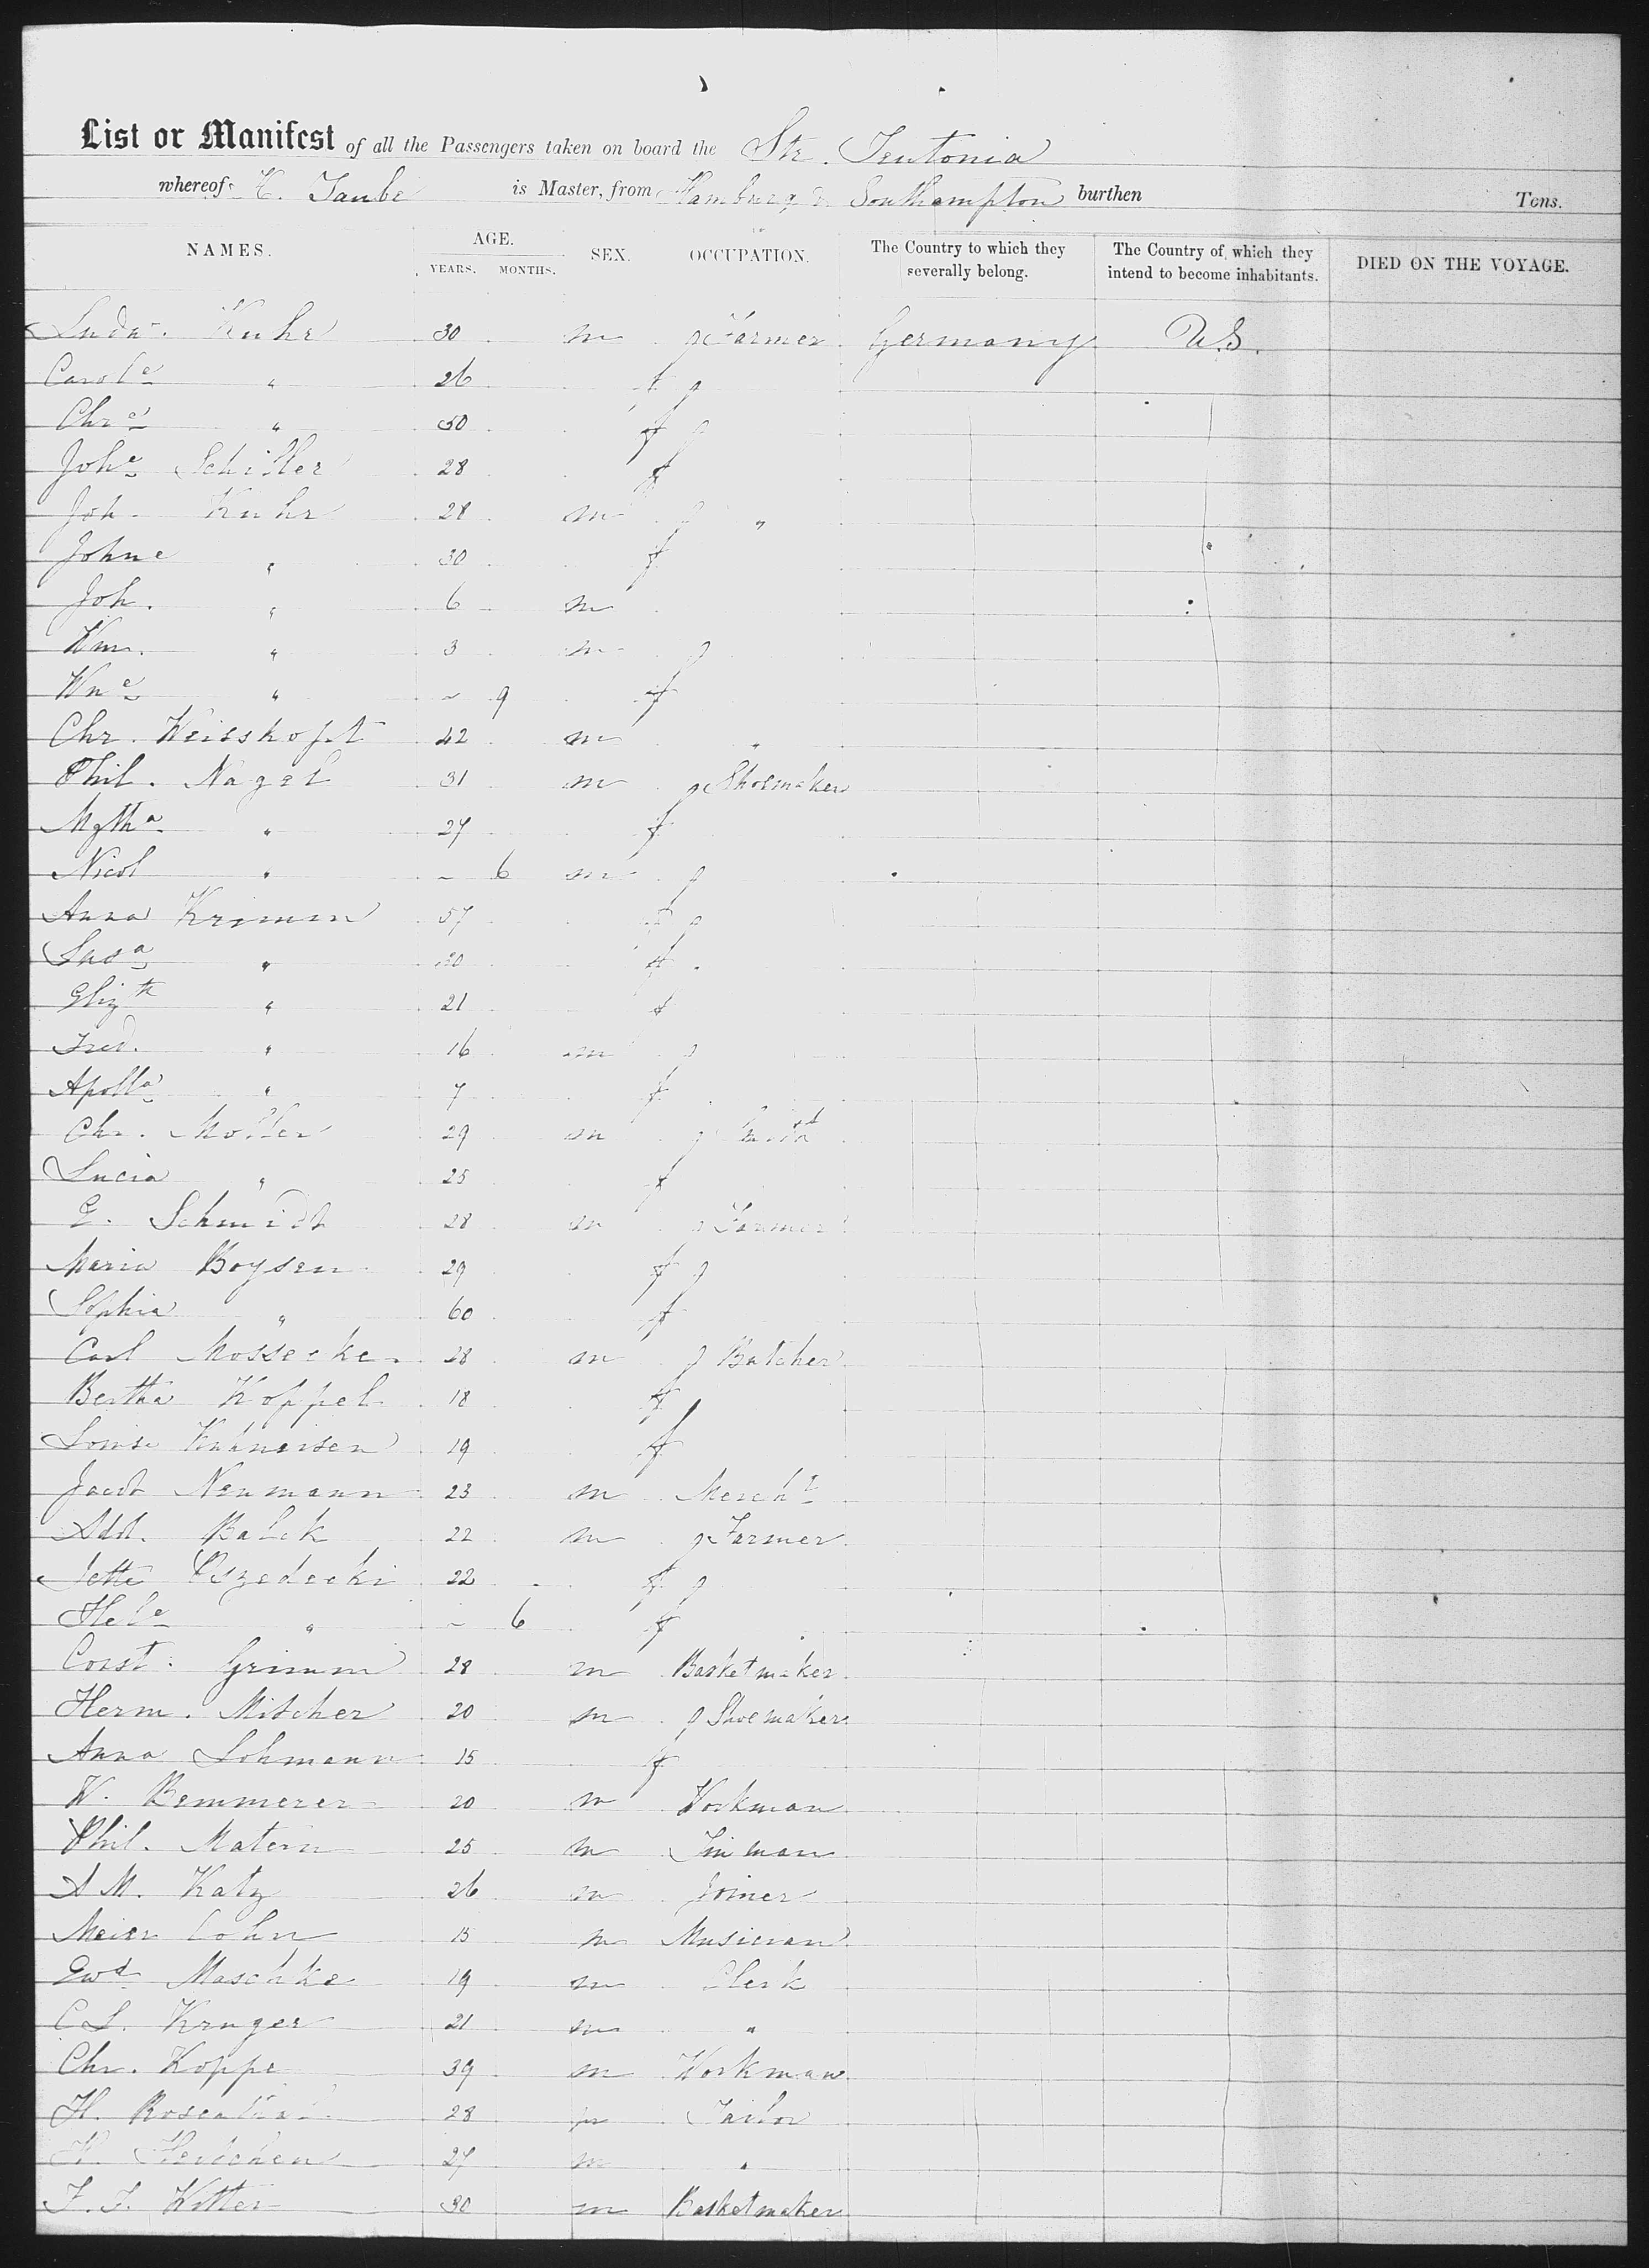 List or Manifest of all the Passengers taken on board the Str. Teutonia
whereof H. Taube is Master, from Hamburg & Southampton burthen Tons.
NAMES. AGE. YEARS. MONTHS. SEX. OCCUPATION. The Country to which they severally belong. The Country of which they intend to become inhabitants. DIED ON THE VOYAGE.
Kuhr 30 m Farmer Germany U.S.
Carole " 26 f
Chre " 50 f
Johe Schiller 28 f
Joh. Kuhr 28 m "
Johne " 30 f
Joh. " 6 m
Wm. " 3 m
Wne " ~ 9 f
Chr. Weisskopf 42 m "
Phil. Nagel 31 m Shoemaker
Mgtha " 27 f
Nicol " ~ 6 m
Anna Krimm 57 f
Susa " 20 f
Elizth " 21 f
Fred. " 16 m
Apolla " 7 f
Chr. Moller 29 m
Lucia " 25 f
E. Schmidt 28 m Farmer
Maria Boysen 29 f
Sophia " 60 f
Carl Mossecker 28 m Butcher
Bertha Koppel 18 f
Louise Kuhneisen 19 f
Jacob Neumann 23 m Mercht
Add. Balck 22 m Farmer
Jette 22 f
Hele " ~ 6 f
Const. Grimm 28 m Basketmaker
Herm. Mitscher 20 m Shoemaker
Anna Lohmann 15 f
W. Bemmerer 20 m Workman
Phil. Matern 25 m Tinman
A M. Katz 26 m Joiner
Meier Cohn 15 m Musician
Ewd Maschke 19 m Clerk
C L. Kruger 21 m "
Chr. Koppe 39 m Workman
H. Rosenthal 28 m Tailor
H. 27 m "
F. F. Kotter 30 m Basketmaker